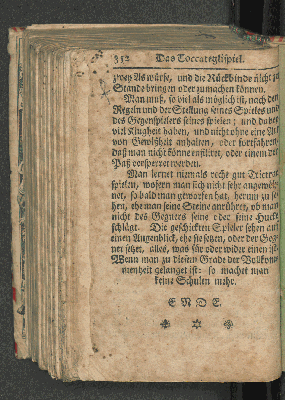 312 Das Toccateglispiel.
zwey As würfe, und die Rückbinde nicht zu
Stande bringen oder zu machen können.
Man muß, so viel als möglich ist, nach den
Regeln und der Stellung seines Spieles und
des Gegenspielers seines spielen; und dabey
viel Klugheit haben, und nicht ohne eine Art
von Gewißheit anhalten, oder fortfahren,
daß man nicht könne enfiliret, oder einem der
Paß versperret werden.
Man lernet niemals recht gut Trictrac
spielen, wofern man sich nicht sehr angewöh-
net, so bald man geworfen hat, herum zu se-
hen, ehe man seine Steine anrühret, ob man
nicht des Gegners seine oder seine Hucke
schlägt. Die geschickten Spieler sehen auf
einen Augenblick, ehe sie setzen, oder der Geg-
ner setzet, alles, was für oder wider einen ist.
Wenn man zu diesem Grade der Vollkom-
menheit gelanget ist: so machet man
keine Schulen mehr.
ENDE.